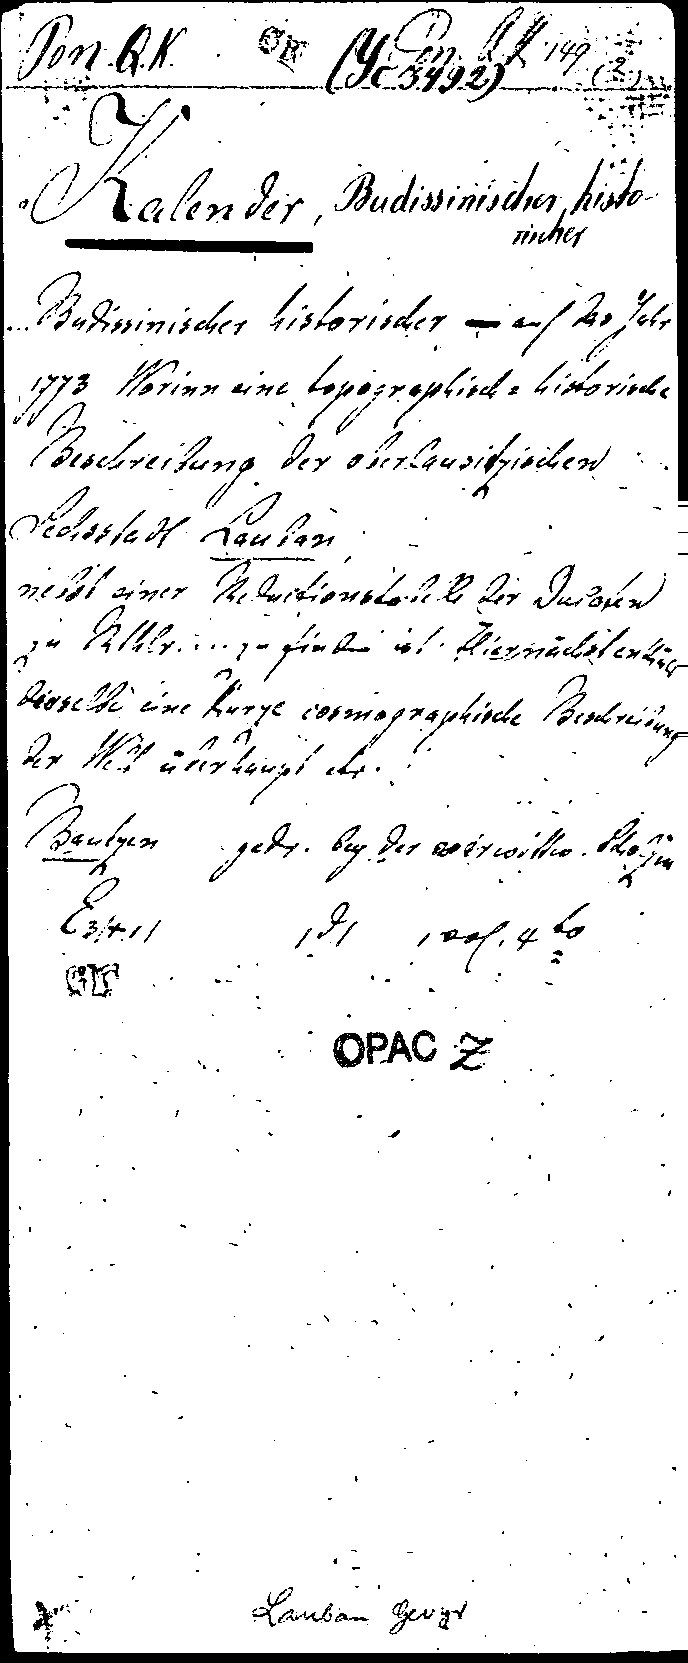 Pon. QK. (Yc 3492) Pon QK 149 (2)
Kalender, Budissinischer, histo-
rischer
Budissinischer historischer — auf das Jahr
1773 Worinn eine topographisch = historische
Beschreibung der oberlausitzischen
Sechsstadt Lauban,
nebst einer Reductionstabelle der Ducaten
zu Rthlr.... zu finden ist. Hiernächst enthält
dieselbe eine kurze cosmographische Beschreibung
der Welt überhaupt etc.
Bautzen gedr. bey der verwittw.
1 vol. 4to
OPAC Z
Lauban